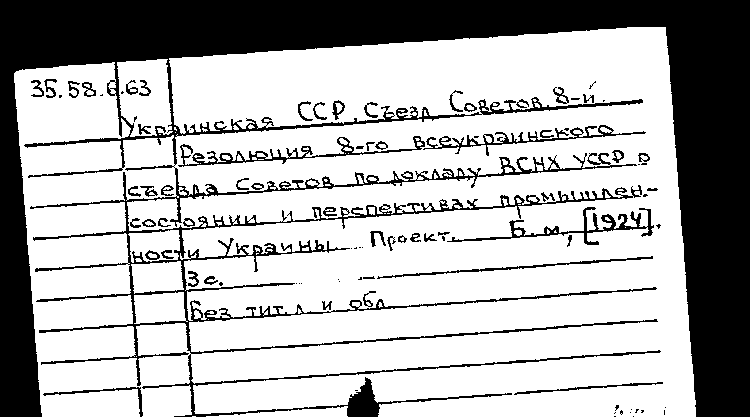 35.58.6.63
Украинская ССР. Съезд Советов, 8-й.
Резолюция 8-го всеукраинского
съезда Советов по докладу ВСНХ УССР о
состоянии и перспективах промышлен-
ности Украины. Проект. Б.м., [1924].
3 с.
Без тит. л. и обл.